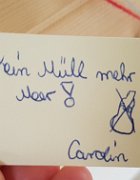 ein Müll mehr
Meer!
Carolin